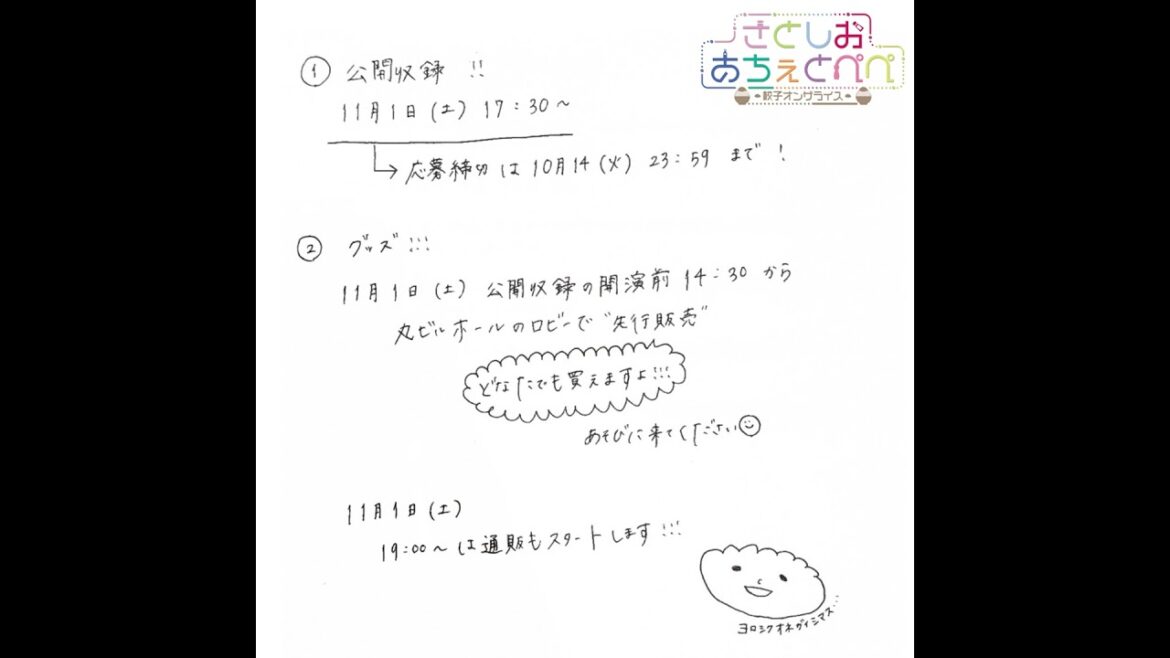 さとしお
あちぇとぺぺ
餃子オンザライス
① 公開収録 !!
11月1日(土) 17:30〜
応募締切は10月14(火) 23:59 まで!
② グッズ!!!
11月1日(土) 公開収録の開演前14:30から
丸ビルホールのロビーで"先行販売"
どなたでも買えますよ!!!
あそびに来てください
11月1日(土)
19:00〜は通販もスタートします!!!
ヨロシクオネガイシマス...